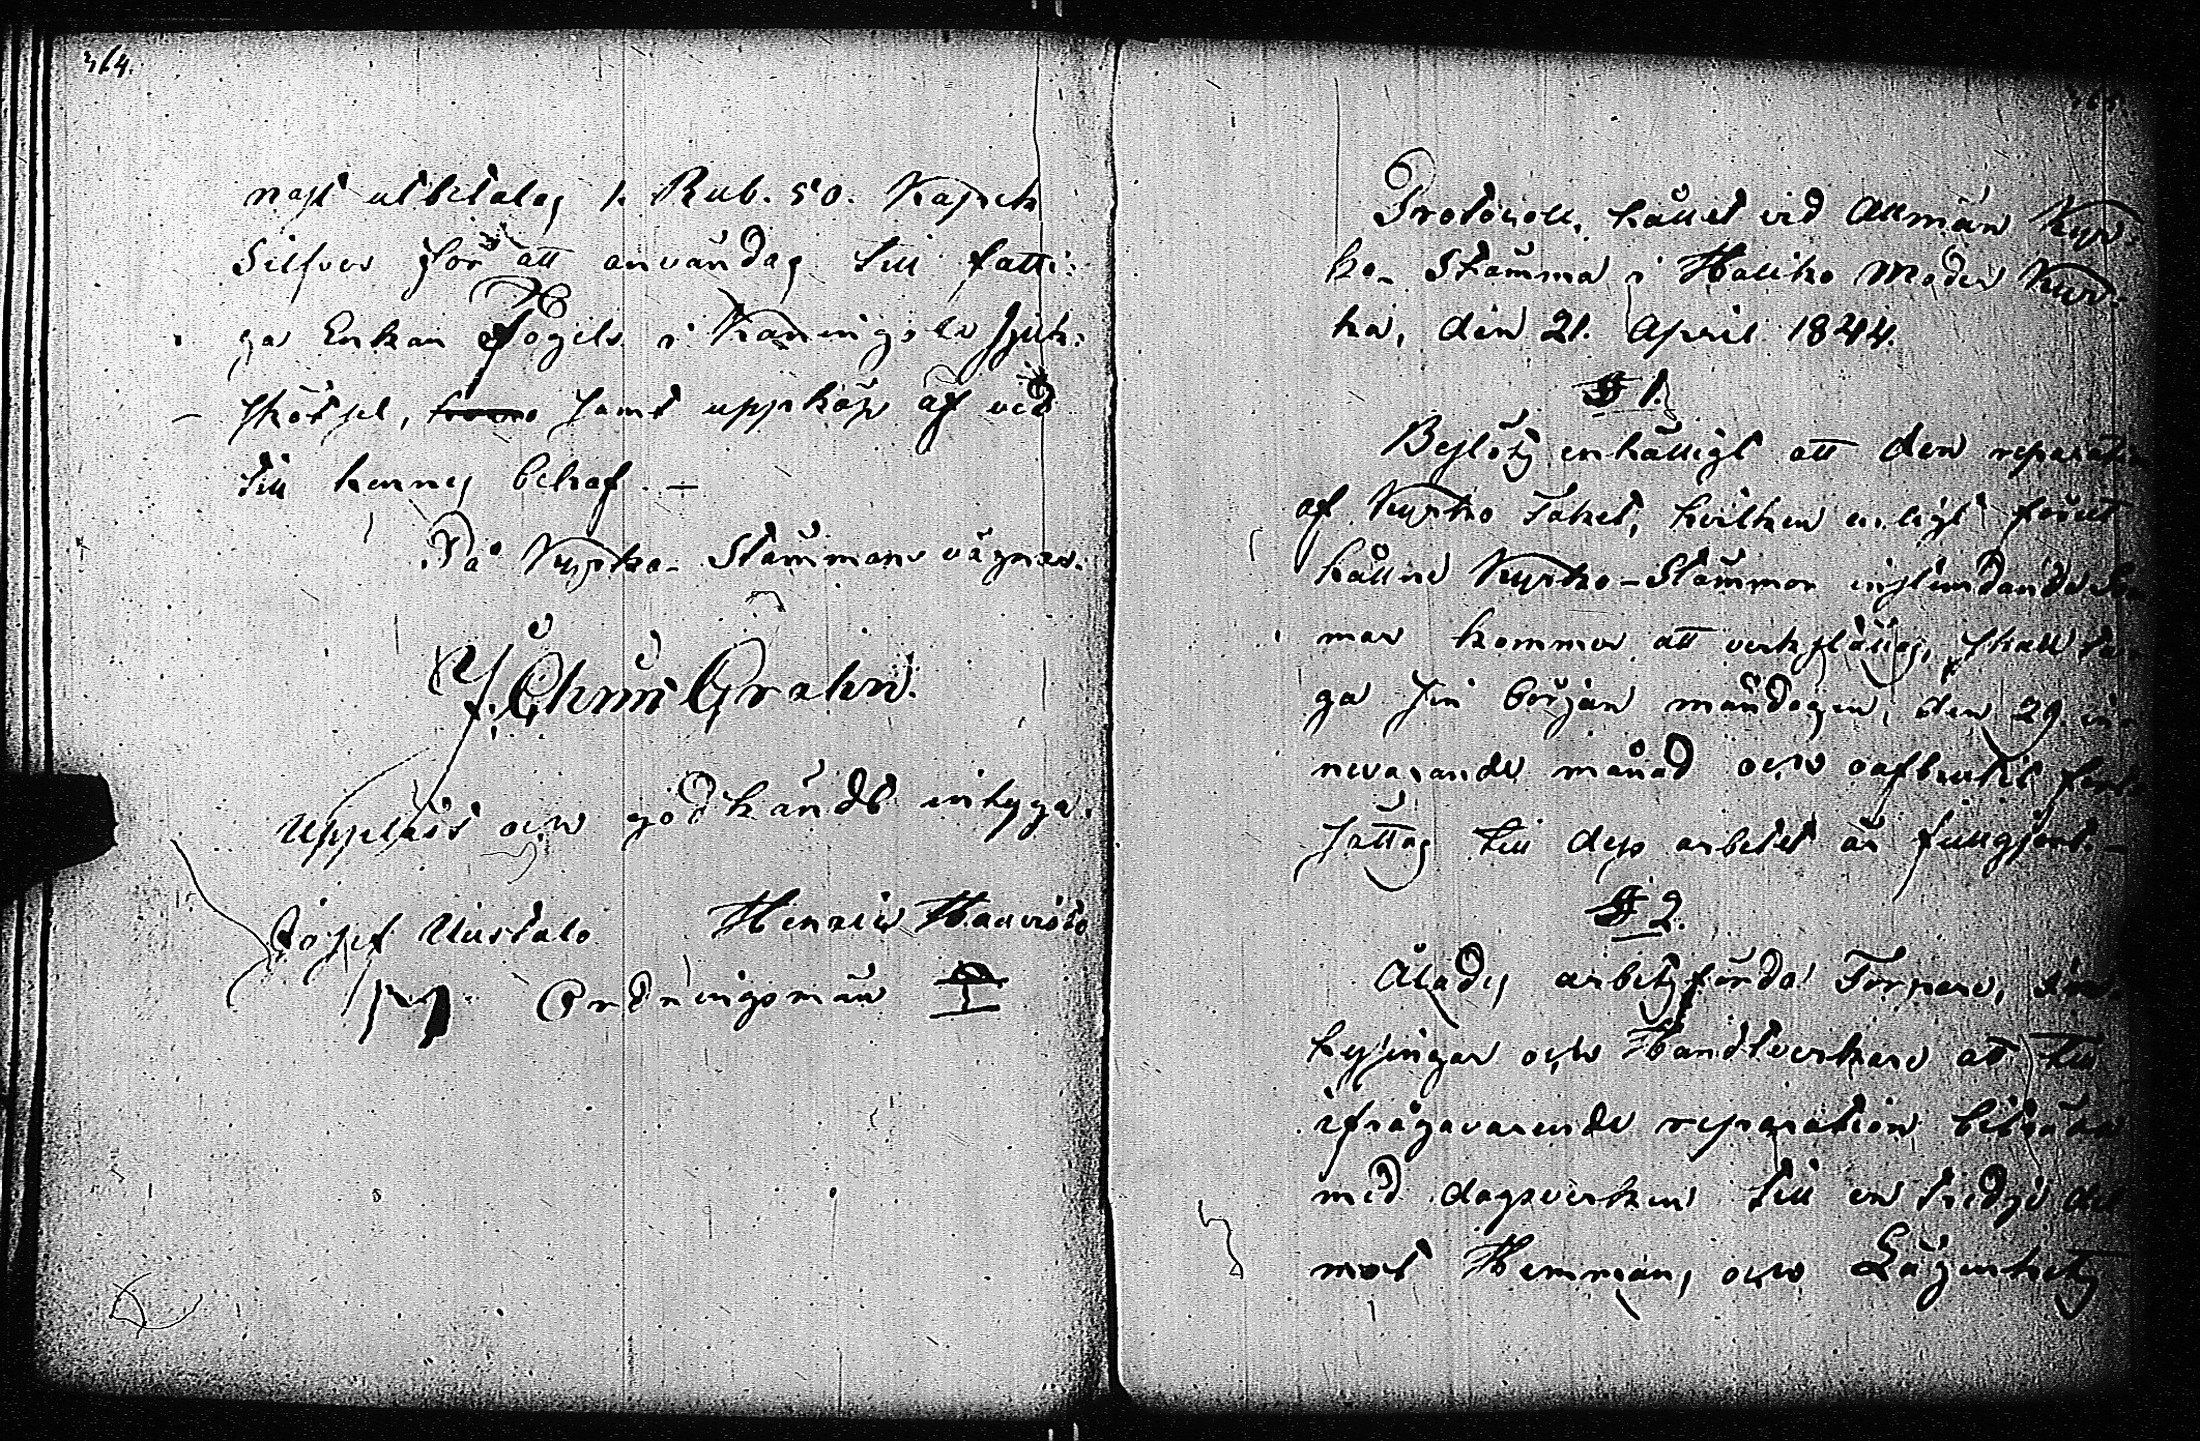 364.
nast utbetalas 1. Rub. 50. Kopek
Silfver för att användas till fatti-
ga Enkan Högels i Kaningola sjuk-
skötsel, samt uppköp af ved
till hennes behof. —
På Kyrko-Stämmans vägnar.
Grahn.
Uppläst och godkändt intyga.
Josef Uustalo Henric Haavisto
Ordningsmän
Protocoll, hållet vid Allmän Kyr-
ko-Stämma i Haliko Moder Kyr-
ka, den 21. April 1844.
§ 1.
Beslöts enhälligt att den reparation
af Kyrko Taket, hvilken enligt förut
hållne Kyrko-Stämmor instundande Som
mar kommer att verkställas, skall ta-
ga sin början måndagen, den 29. in
nevarande månad och oafbrutit fort
sättas till dess arbetet är fullgjort. —
§ 2.
Ålades arbetsföra Torpare, In-
hysingar och Handtverkare att till
ifrågavarande reparation biträda
med dagsverken till en tredje del
mot Hemmans och Lägenhets